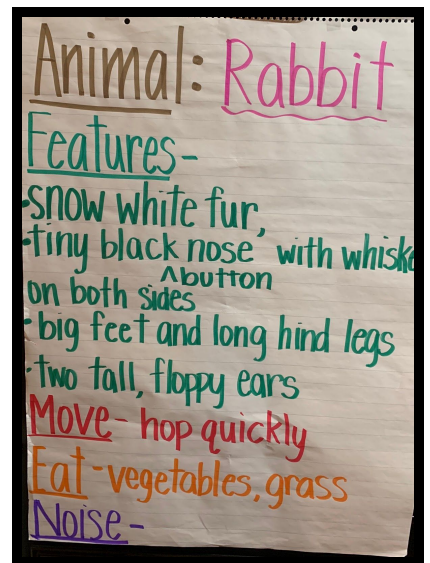 Animal: Rabbit
Features-
•snow white fur,
•tiny black nose with whiske
^button
on both sides
•big feet and long hind legs
•two tall, floppy ears
Move- hop quickly
Eat-vegetables, grass
Noise-